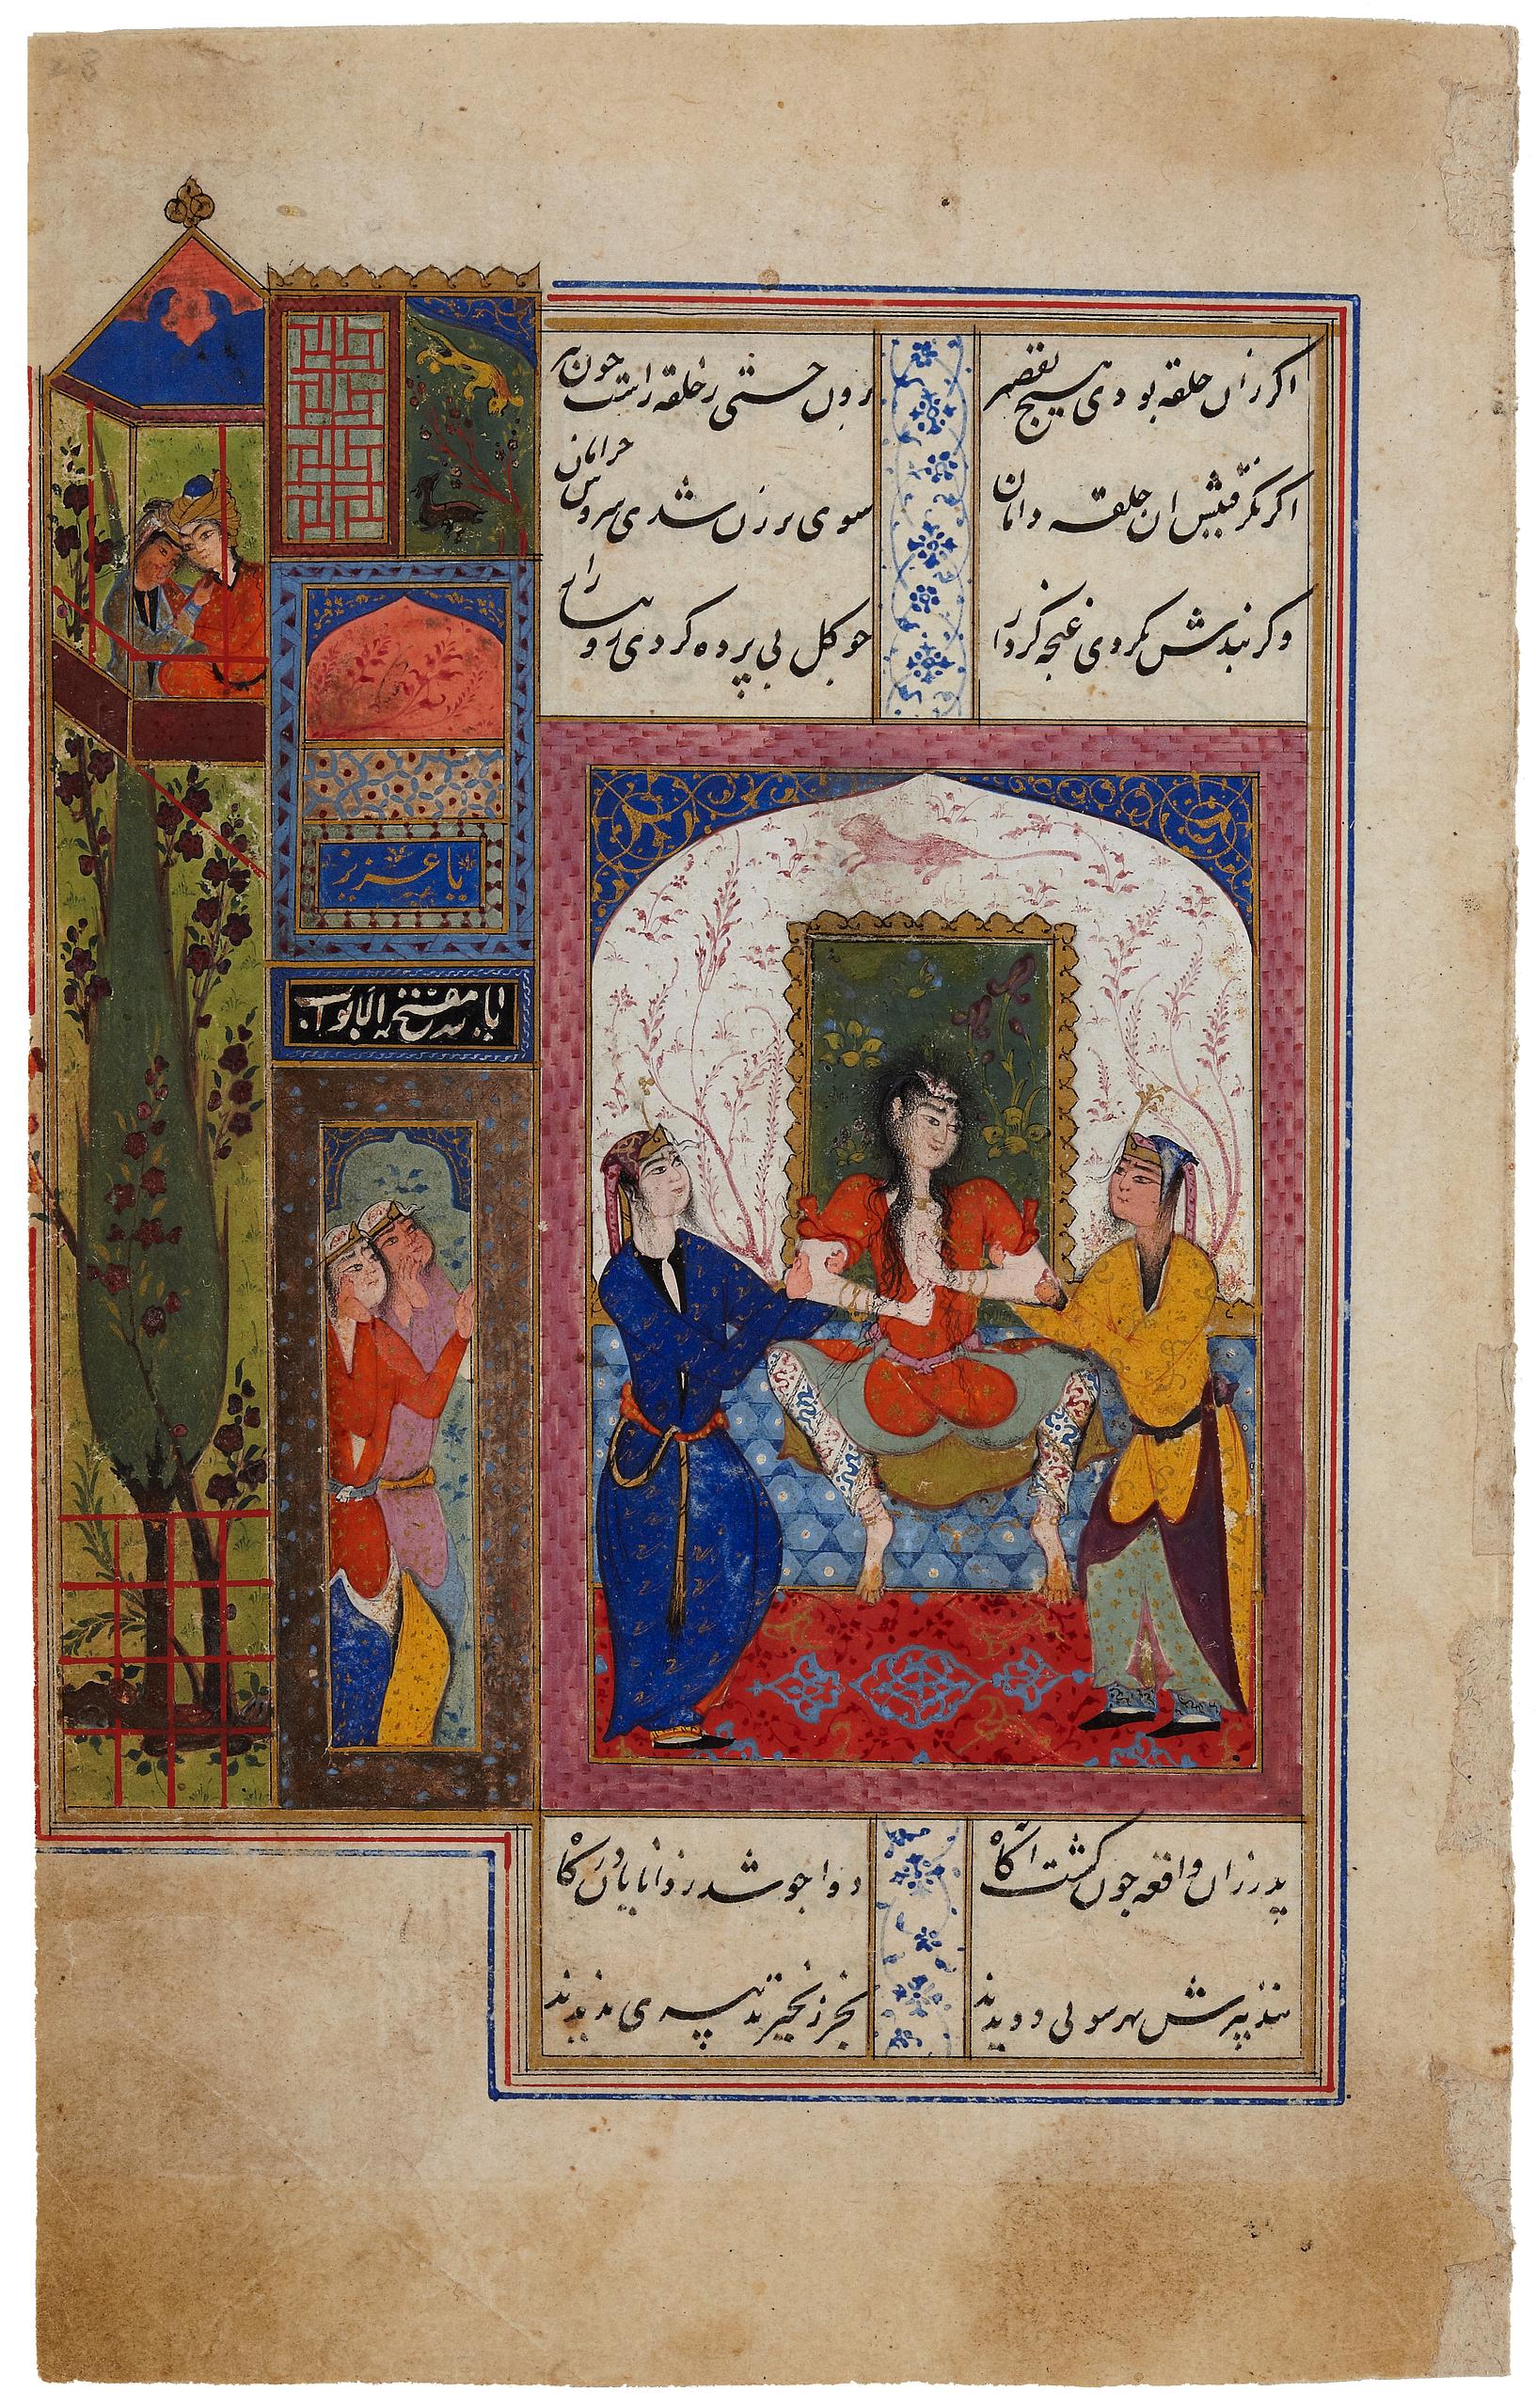 اکر زان حلقه بودی هیچ تقصیر
برون جستی ز حلقه راست چون تیر
اکر نکرفتیش ان حلقه دامان
سوی برزن شدی سروش خرامان
وکر بندش نکردی غنچه کردار
چو کل بی پرده کردی رو ببازار
یا عزیز
یا مفتح الابواب
پدر زان واقعه چون کشت اکاه
دواجو شد ز دانایان درکاه
بتدبیرش بهر سوئی دویدند
بجز زنجیر تدبیری ندیدند